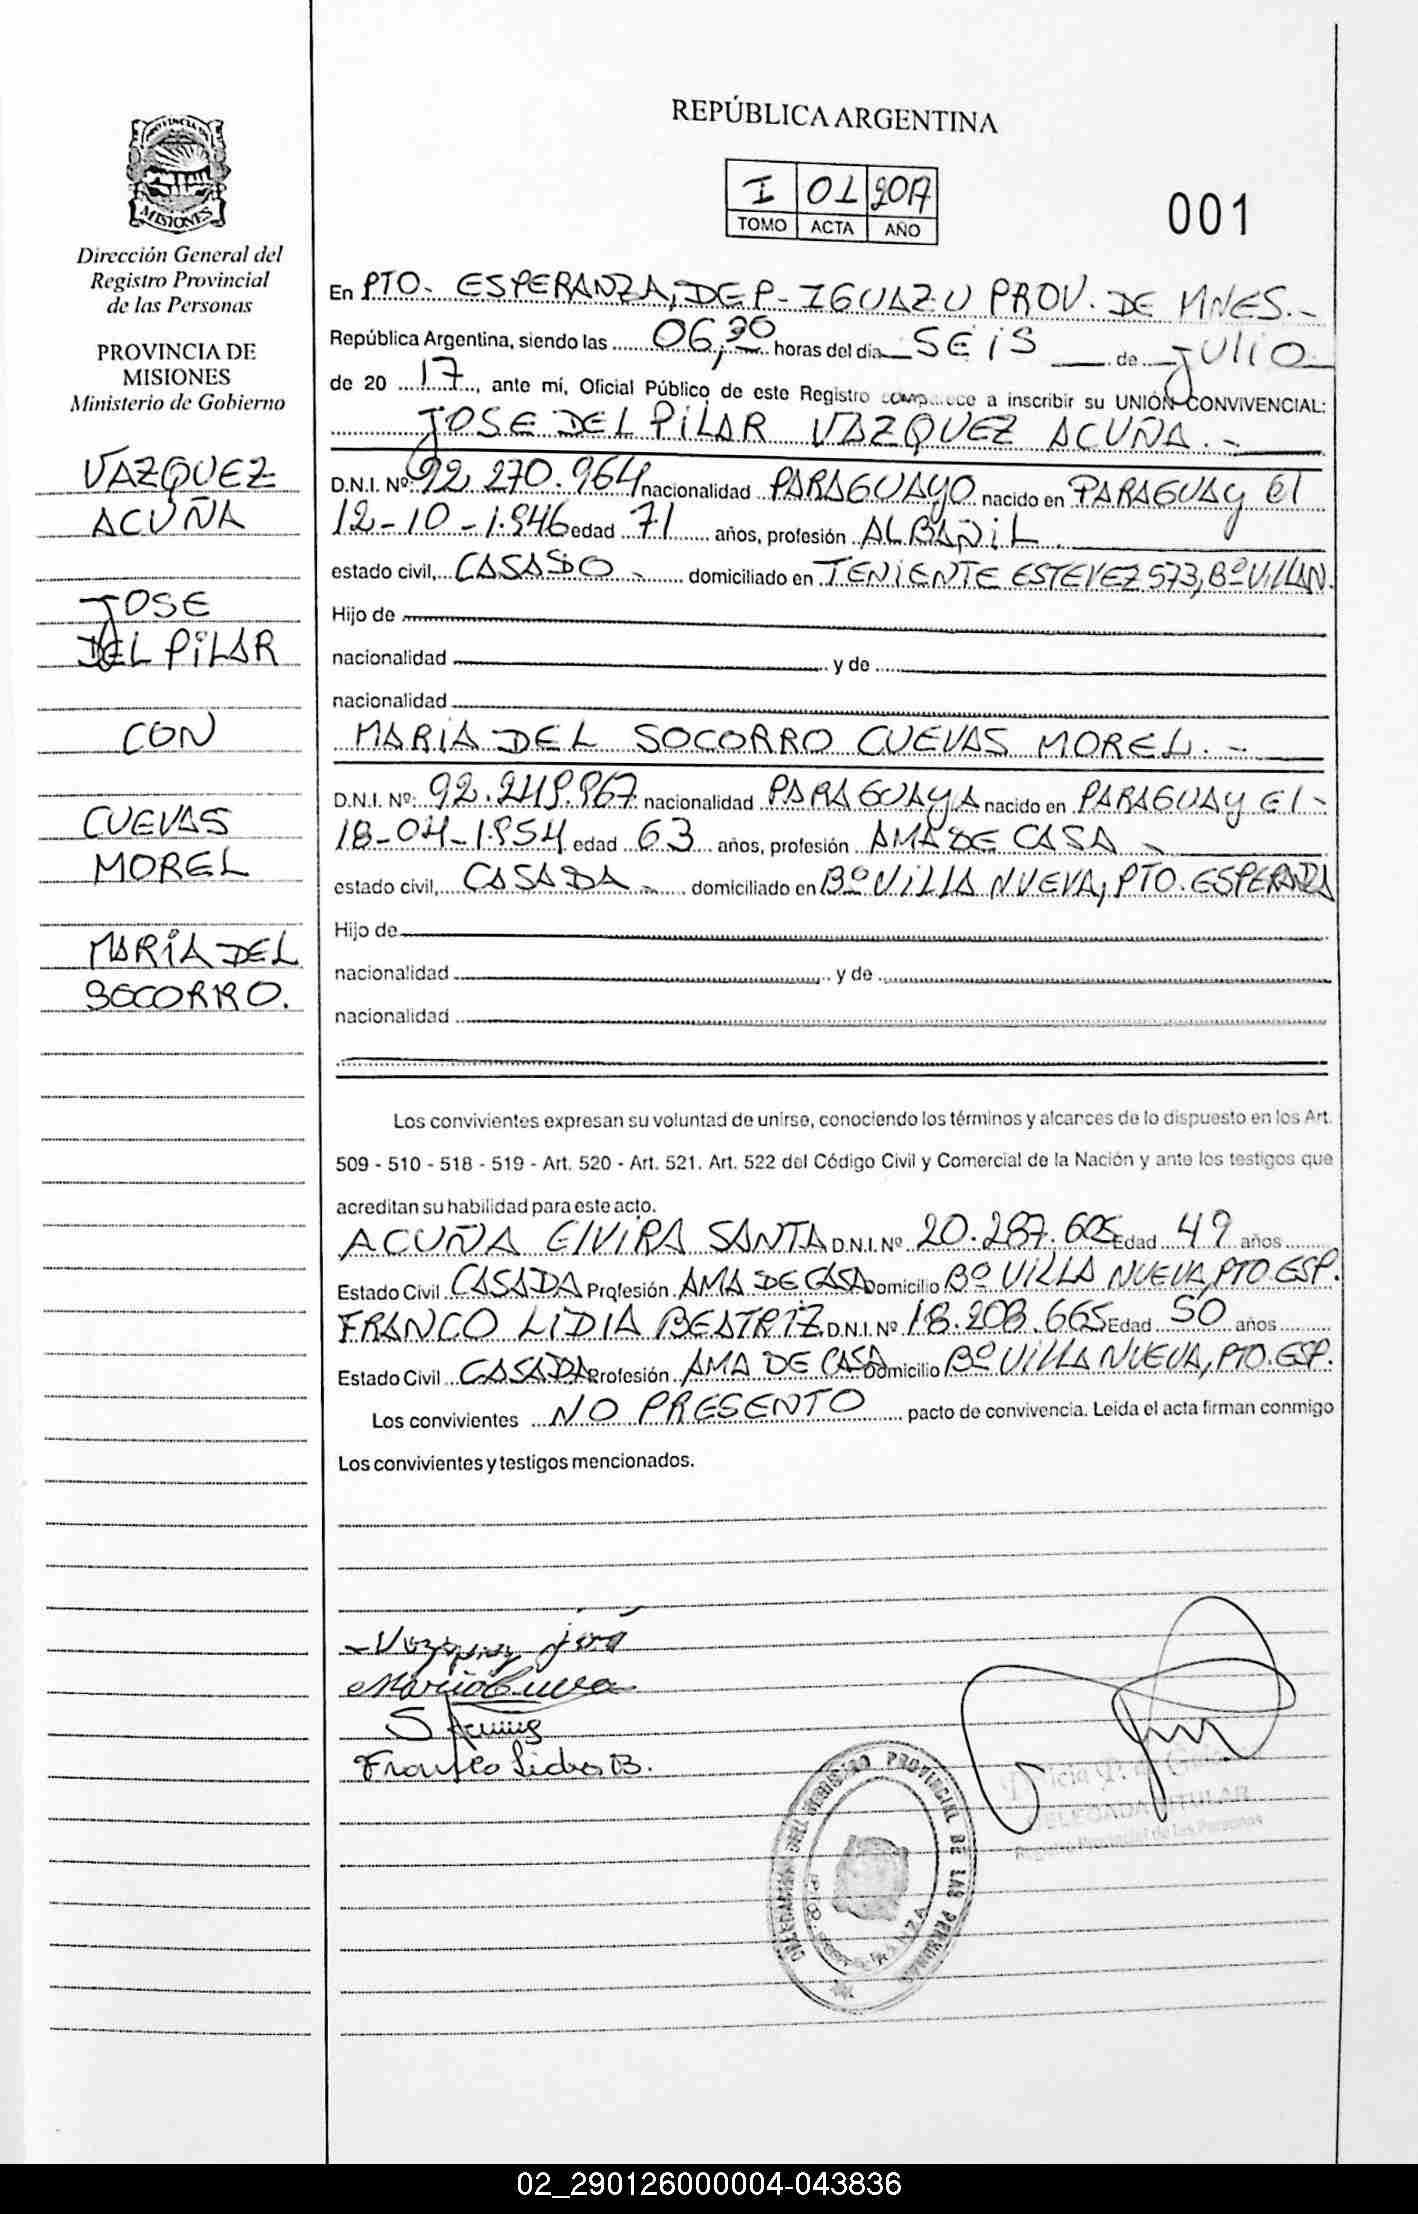 REPÚBLICA ARGENTINA
I 01 2017
TOMO ACTA AÑO
001
PROVINCIA DE
MISIONES
Dirección General del
Registro Provincial
de las Personas
PROVINCIA DE
MISIONES
Ministerio de Gobierno
VAZQUEZ
ACUÑA
JOSE
DEL PILAR
CON
CUEVAS
MOREL
MARIA DEL
SOCORRO.
En PTO. ESPERANZA, DEP- IGUAZU PROV. DE MNES.-
República Argentina, siendo las 06,30 horas del dia SEIS de JULIO
de 20 17, ante mí, Oficial Público de este Registro comparece a inscribir su UNIÓN CONVIVENCIAL:
JOSE DEL PILAR VAZQUEZ ACUÑA.-
D.N.I. Nº 92.270.964 nacionalidad PARAGUAYO nacido en PARAGUAY el
12-10-1.946 edad 71 años, profesión ALBAÑIL
estado civil, CASADO - domiciliado en TENIENTE ESTEVEZ 573, Bº VILLAN.
Hijo de
nacionalidad y de
nacionalidad
MARIA DEL SOCORRO CUEVAS MOREL.-
D.N.I. Nº: 92.249.967 nacionalidad PARAGUAYA nacido en PARAGUAY El-
18-04-1.954 edad 63 años, profesión AMA DE CASA -
estado civil, CASADA - domiciliado en Bº VILLA NUEVA, PTO. ESPERANZA
Hijo de
nacionalidad y de
nacionalidad
Los convivientes expresan su voluntad de unirse, conociendo los términos y alcances de lo dispuesto en los Art.
509 - 510 - 518 - 519 - Art. 520 - Art. 521. Art. 522 del Código Civil y Comercial de la Nación y ante los testigos que
acreditan su habilidad para este acto.
ACUÑA ElVIRA SANTA D.N.I. Nº 20.287.605 Edad 49 años
Estado Civil CASADA Profesión AMA DE CASA Domicilio Bº VILLA NUEVA, PTO ESP.
FRANCO LIDIA BEATRIZ D.N.I. Nº 18.208.665 Edad 50 años
Estado Civil CASADA Profesión AMA DE CASA Domicilio Bº VILLA NUEVA, PTO. ESP.
Los convivientes NO PRESENTO pacto de convivencia. Leída el acta firman conmigo
Los convivientes y testigos mencionados.
Maria Cueva
Franco Lidia B.
DELEGACION DEL REGISTRO PROVINCIAL DE LAS PERSONAS
PTO. ESPERANZA
DELEGADA TITULAR
Registro Provincial de las Personas
02_290126000004-043836